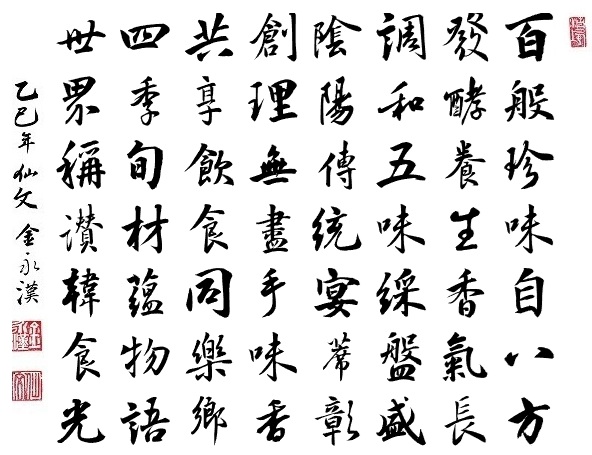 百般珍味自八方
發酵養生香氣長
調和五味綵盤盛
陰陽傳統宴蓆彰
創理無盡手味香
共享飲食同樂鄉
四季旬材蘊物語
世界稱讚韓食光
乙巳年仙文金永漢